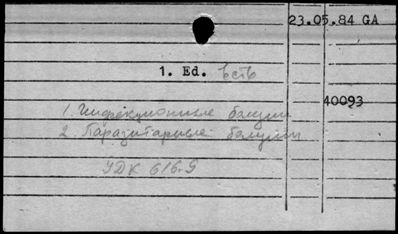 23.05.84 GA
1. Ed. есть
40093
1. Инфекционные болезни
2. Паразитарные болезни
УДК 616.9